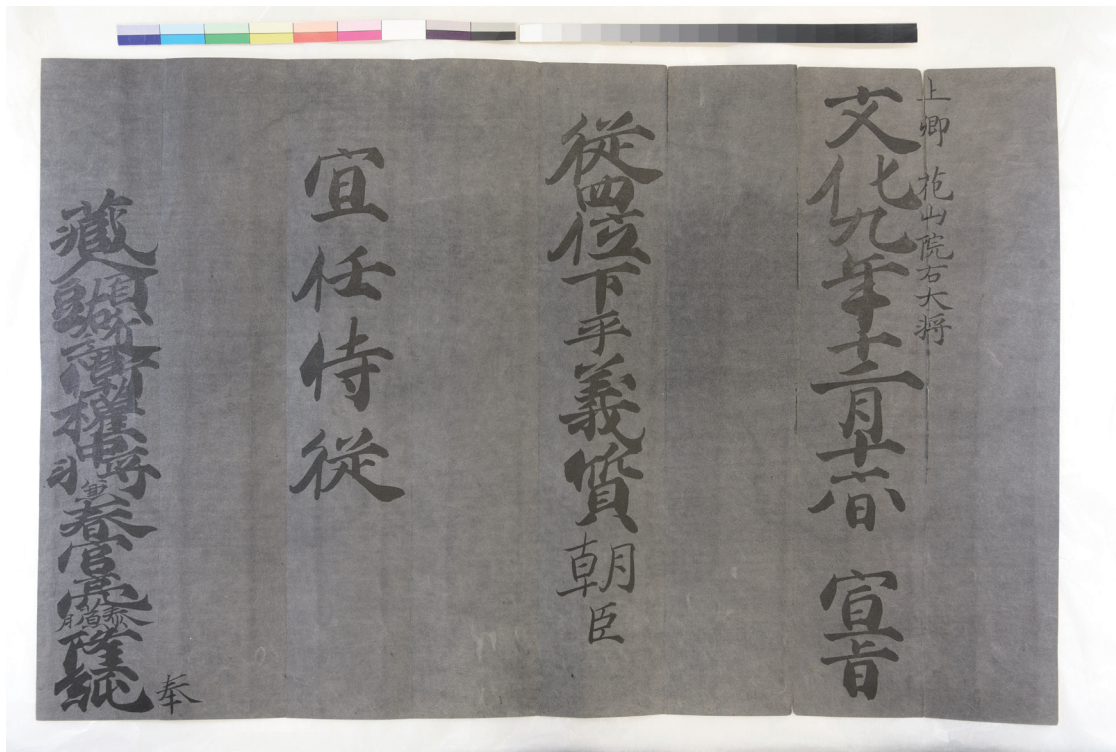 上卿 花山院右大将
文化九年十二月十六日 宣旨
従四位下平義質朝臣
宜任侍従
蔵人頭左近衛権中将兼春宮亮藤原隆純奉